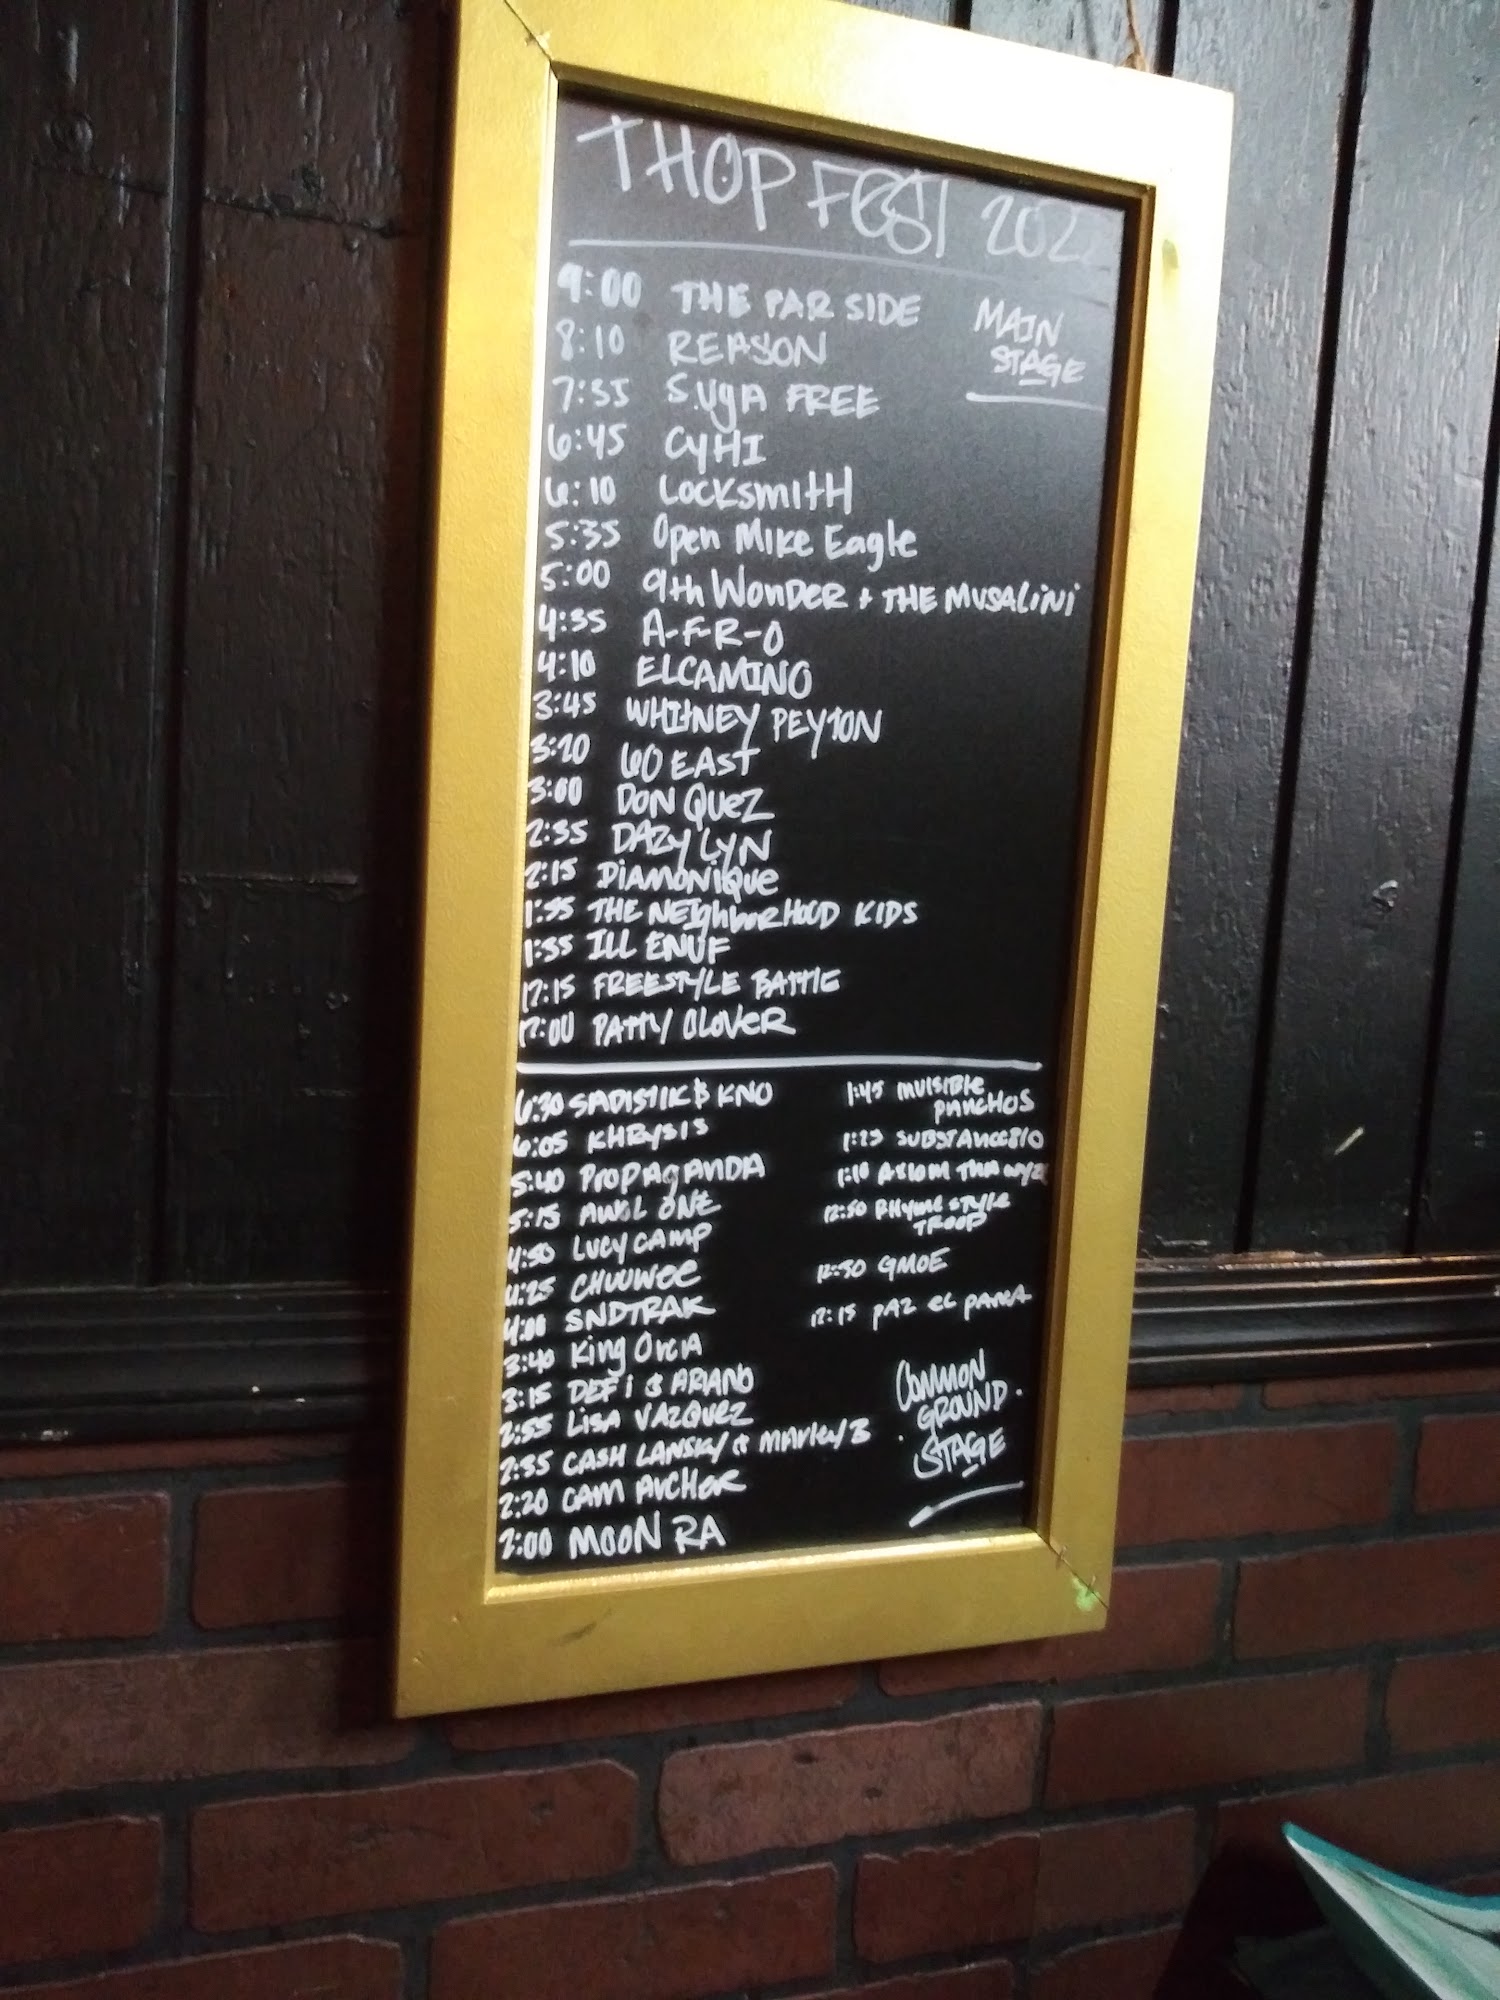 THOP FEST 202
9:00 THE PAR SIDE
MAIN
STAGE
8:10 REASON
7:35 SUGA FREE
6:45 CYHI
6:10 LOCKSMITH
5:35 Open Mike Eagle
5:00 9th WONDER + THE MUSALINI
4:35 A-F-R-O
4:10 ELCAMINO
3:45 WHITNEY PEYTON
3:20 60 EAST
3:00 DON QUEZ
2:35 DAZY LYN
2:15 DIAMONIQUE
1:55 THE NEIGHBORHOOD KIDS
1:35 ILL ENUF
12:15 FREESTYLE BATTLE
12:00 PATTY CLOVER
6:30 SADISTIK & KNO
6:05 KHRYSIS
5:40 PROPAGANDA
5:15 AWOL ONE
4:50 LUCY CAMP
4:25 CHUUWEE
4:00 SNDTRAK
3:40 KING ORCIA
3:15 DEF i & ARIANO
2:55 LISA VAZQUEZ
2:35 CASH LANSKY & MARLEY B
2:20 CAM ARCHER
2:00 MOON RA
1:45 INVISIBLE
PANCHOS
1:25 SUBSTANCE810
1:10 AXIOM THA
12:50 RHYME STYLE
TROOP
12:30 GMOE
12:15 PAZ EL PARCA
COMMON
GROUND
STAGE